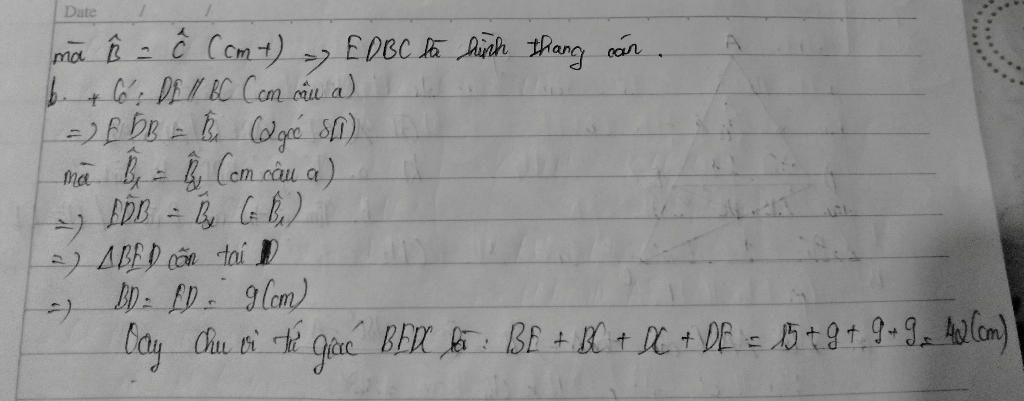 Date / /
mà B̂ = Ĉ (cmt) => EDBC là hình thang cân.
b. + Có: DE // BC (cm câu a)
=> ED̂B = B̂₁ (2 góc SLT)
mà B̂₁ = B̂₂ (cm câu a)
=> ED̂B = B̂₂ (= B̂₁)
=> ΔBED cân tại D
=> BD = ED = 9(cm)
Vậy chu vi tứ giác BEDC là: BE + BC + DC + DE = 15 + 9 + 9 + 9 = 42(cm)